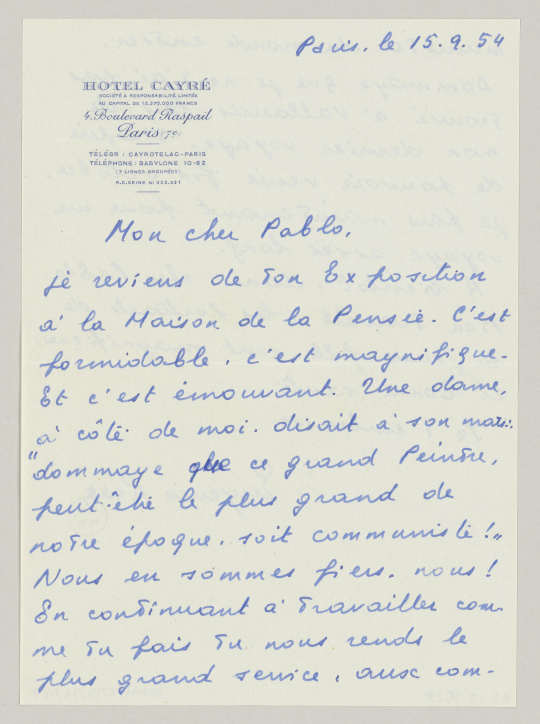 Paris, le 15.9.54
HOTEL CAYRÉ
SOCIÉTÉ A RESPONSABILITÉ LIMITÉE
AU CAPITAL DE 13.270.000 FRANCS
4, Boulevard Raspail
Paris (7e)
TÉLÉGR : CAYROTELAC-PARIS
TÉLÉPHONE : BABYLONE 10-82
(7 LIGNES GROUPÉES)
R.C. SEINE No
Mon cher Pablo,
je reviens de ton Exposition
à la Maison de la Pensée. C'est
formidable, c'est magnifique.
Et c'est émouvant. Une dame,
à côté de moi, disait à son mari:
"dommage que ce grand Peintre,
peut-être le plus grand de
notre époque, soit communiste!"
Nous en sommes fiers, nous!
En continuant à travailler com-
me tu fais tu nous rends le
plus grand service, aux com-